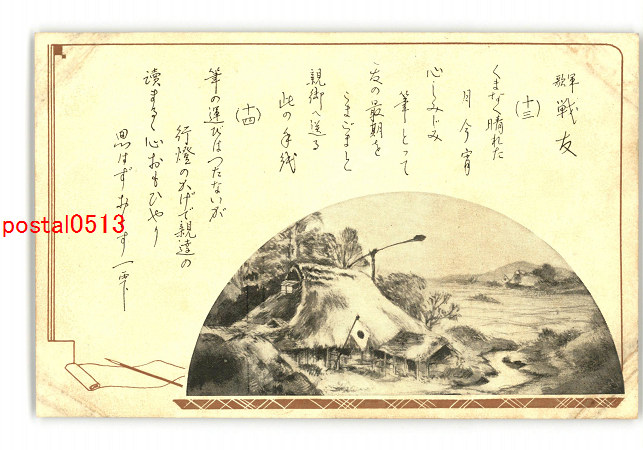 軍歌 戦友
(十三)
くまなく晴れた
月今宵
心しみじみ
筆とつて
友の最期を
こまごまと
親御へ送る
此の手紙
(十四)
筆の運びはつたないが
行燈のかげで親達の
讀まるゝ心おもひやり
思はずおとす一雫
postal0513